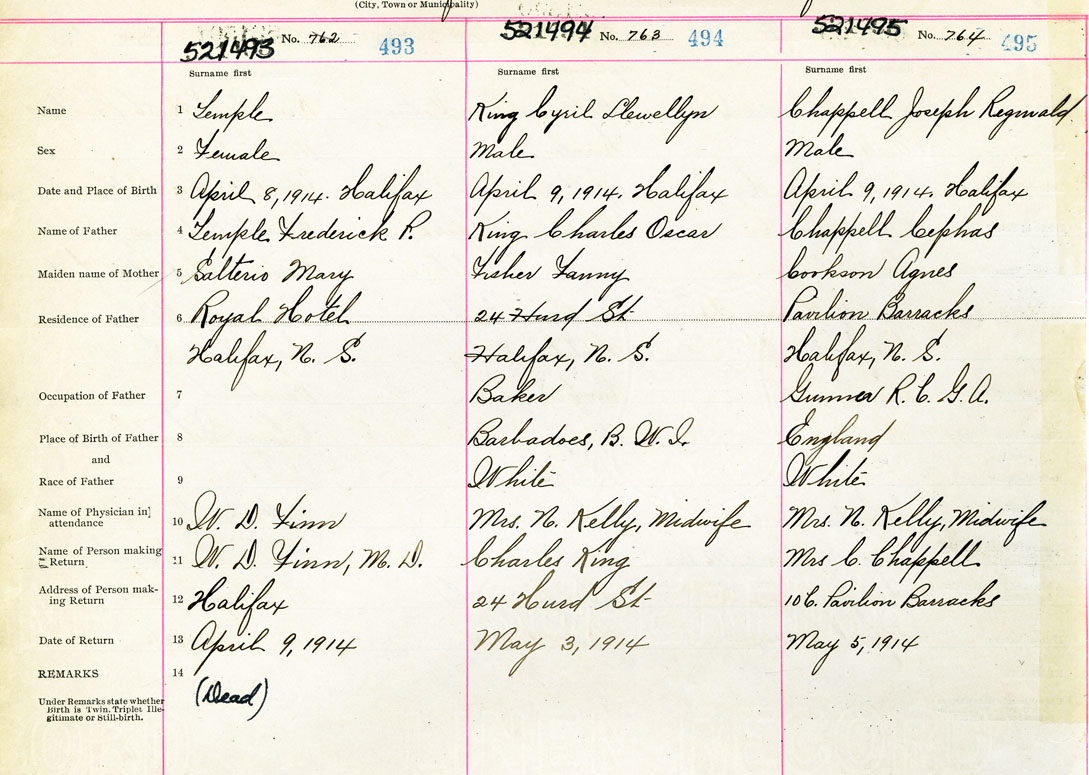 (City, Town or Municipality)
521493 No. 762 493 521494 No. 763 494 521495 No. 764 495
Surname first Surname first Surname first
Name 1 Temple King Cyril Llewellyn Chappell Joseph Reginald
Sex 2 Female Male Male
Date and Place of Birth 3 April 8, 1914. Halifax April 9, 1914, Halifax April 9, 1914, Halifax
Name of Father 4 Temple Frederick R. King Charles Oscar Chappell Cephas
Maiden name of Mother 5 Salterio Mary Fisher Fanny Cookson Agnes
Residence of Father 6 Royal Hotel 24 Hurd St Pavilion Barracks
Halifax, N. S. Halifax, N. S. Halifax, N. S.
Occupation of Father 7 Baker Gunner R. C. G. A.
Place of Birth of Father 8 Barbadoes, B. W. I. England
and
Race of Father 9 White White
Name of Physician in] attendance 10 W. D. Finn Mrs. N. Kelly, Midwife Mrs. N. Kelly, Midwife
Name of Person making Return 11 W. D. Finn, M. D. Charles King Mrs C. Chappell
Address of Person mak-
ing Return 12 Halifax 24 Hurd St 10 C. Pavilion Barracks
Date of Return 13 April 9, 1914 May 3, 1914 May 5, 1914
REMARKS 14
(Dead)
Under Remarks state whether
Birth is Twin, Triplet Ille-
gitimate or Still-birth.